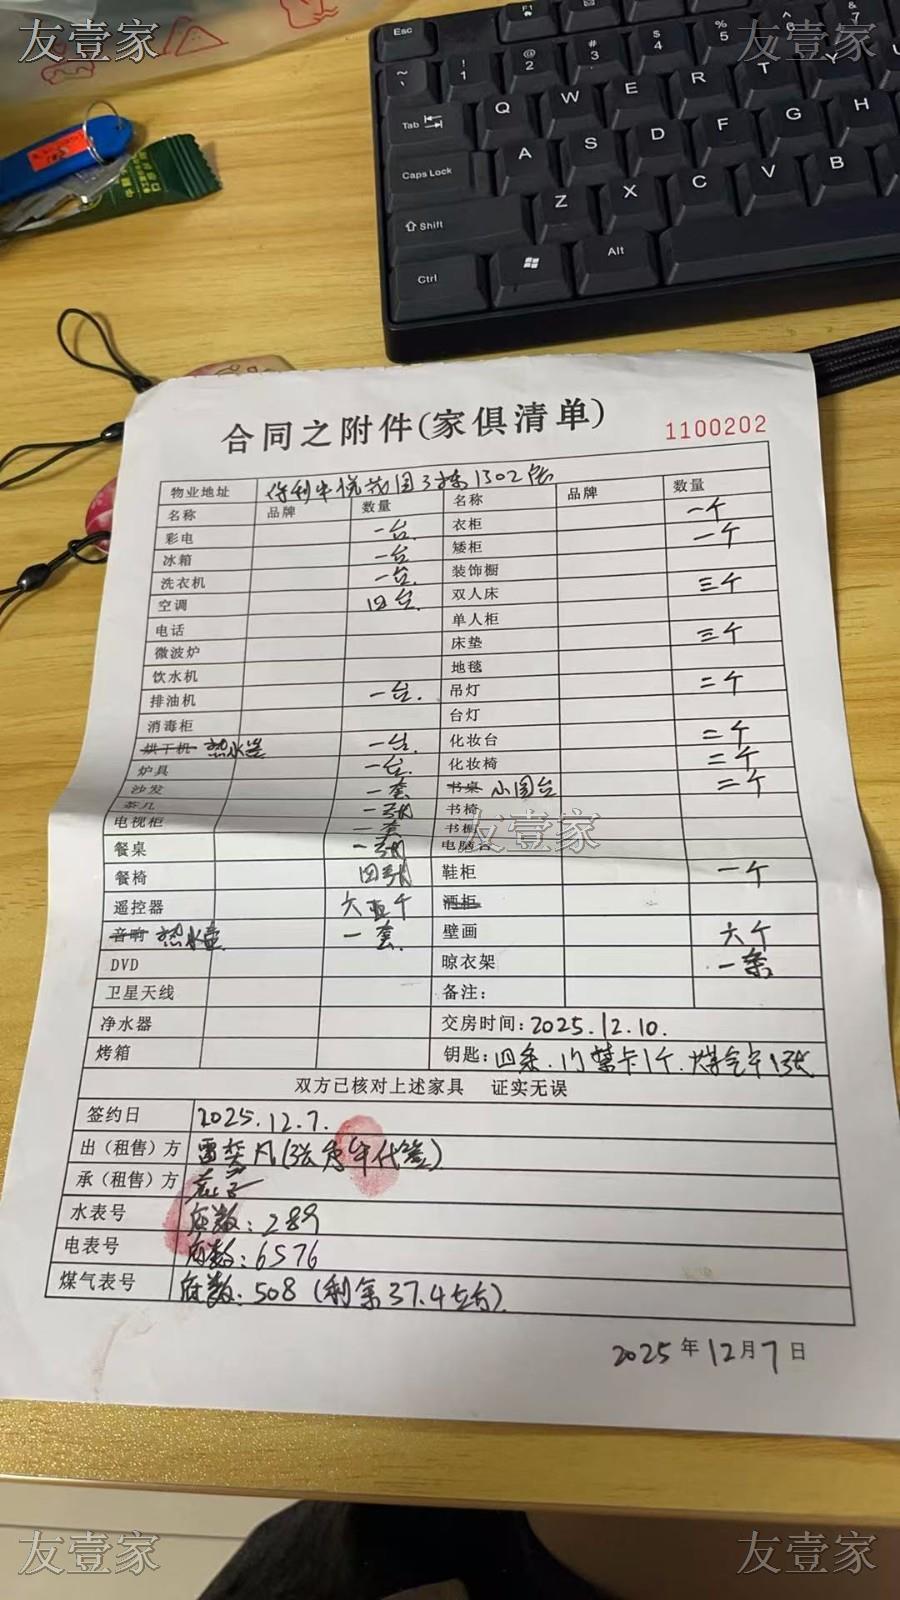 友壹家 友壹家
Esc F1 & 7
~ ! 1 @ 2 # 3 $ 4 % 5 ^ 6
Tab Q W E R T Y U
Caps Lock A S D F G H
Shift Z X C V B
Ctrl Alt
合同之附件(家俱清单)
1100202
物业地址 3栋1502房
名称 品牌 数量 名称 品牌 数量
彩电 一台 衣柜 一个
冰箱 一台 矮柜 一个
洗衣机 一台 装饰橱
空调 四台 双人床 三个
电话 单人柜
微波炉 床垫 三个
饮水机 地毯
排油机 一台 吊灯 二个
消毒柜 台灯
烘干机 热水器 一台 化妆台 二个
炉具 一台 化妆椅 二个
沙发 一套 书桌 小圆台 二个
茶几 一张 书椅
电视柜 一套 书橱
友壹家
餐桌 一张 电脑台
餐椅 四张 鞋柜 一个
遥控器 六个 酒柜
音响 热水壶 一套 壁画 六个
DVD 晾衣架 一条
卫星天线 备注:
净水器 交房时间:2025.12.10.
烤箱 钥匙:四条.门禁卡1个.煤气卡1张
双方已核对上述家具 证实无误
签约日 2025.12.7.
出(租售)方 代签)
承(租售)方
水表号 底数:289
电表号 底数:6576
煤气表号 底数:508(剩余37.4左右).
2025年12月7日
友壹家 友壹家